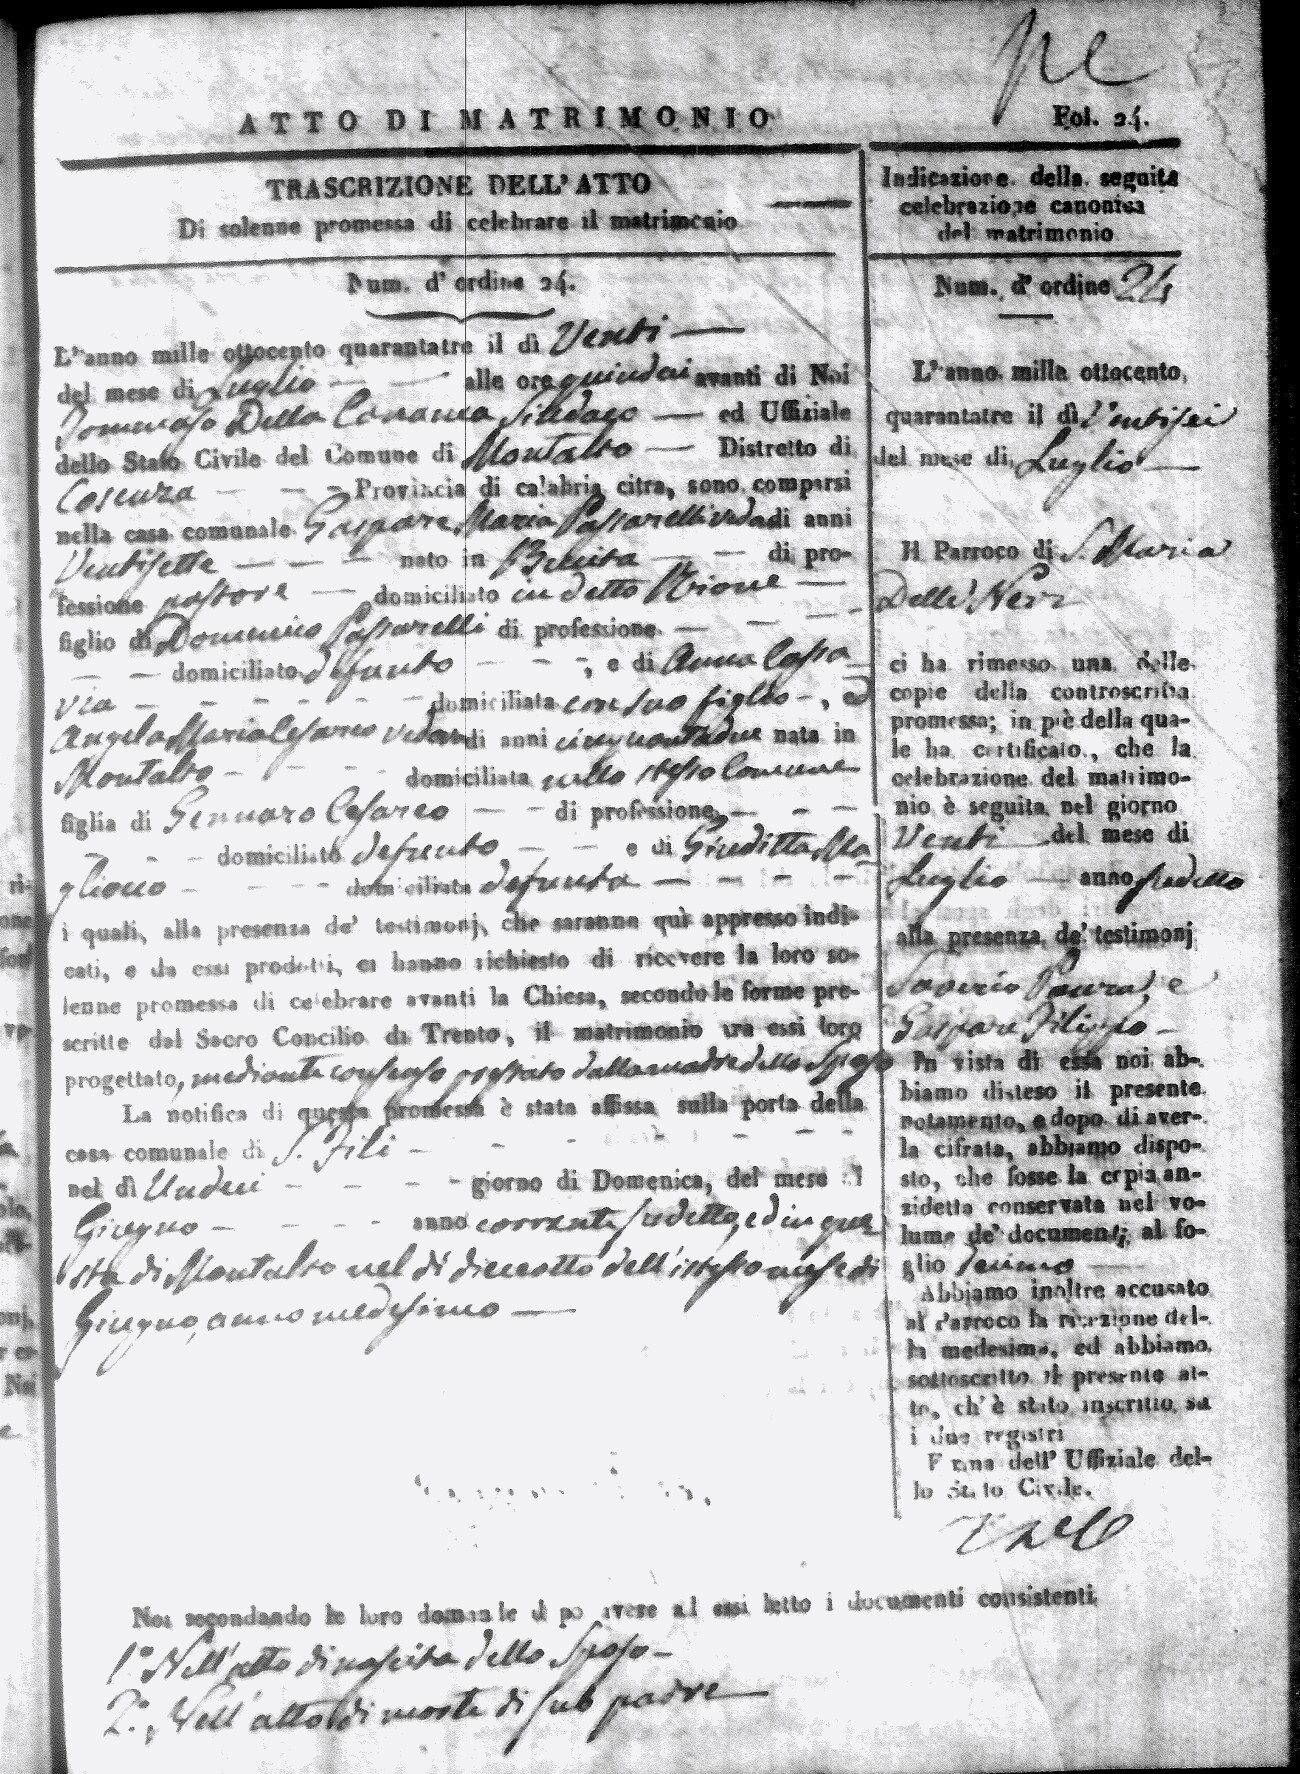 ATTO DI MATRIMONIO
Fol. 24.
TRASCRIZIONE DELL'ATTO
Di solenne promessa di celebrare il matrimonio
Num. d'ordine 24.
L'anno mille ottocento quarantatre il dì Venti
del mese di Luglio alle ore quindeci avanti di Noi
Tommaso Della Sindaco ed Uffiziale
dello Stato Civile del Comune di Montalto Distretto di
Cosenza Provincia di calabria citra, sono comparsi
nella casa comunale Gaspare Maria Passarelli di anni
Ventisette nato in di pro-
fessione pastore domiciliato in detto Rione
figlio di Domenico Passarelli di professione
domiciliato defunto , e di Anna
domiciliata con suo figlio , ed
Angela Maria Cesareo di anni cinquantadue nata in
Montalto domiciliata nello stesso Comune
figlia di Gennaro Cesareo di professione
domiciliato defunto e di Giuditta Ma
gliocco domiciliata defunta
i quali, alla presenza de' testimonj, che saranno quì appresso indi-
cati, e da essi prodotti, ci hanno richiesto di ricevere la loro so-
lenne promessa di celebrare avanti la Chiesa, secondo le forme pre-
scritte dal Sacro Concilio di Trento, il matrimonio tra essi loro
progettato, mediante consenso prestato dalla madre dello Sposo
La notifica di questa promessa è stata affissa sulla porta della
casa comunale di S. Fili
nel dì Undeci giorno di Domenica, del mese di
Giugno anno corrente sudetto, ed in que
sta di Montalto nel dì dieciotto dell'istesso mese di
Giugno, anno medesimo
Noi secondando le loro domande d po avere ad essi letto i documenti consistenti
1.° Nell'atto di nascita dello Sposo
2.°, Nell'atto di morte di suo padre
Indicazione della seguita
celebrazione canonica
del matrimonio
Num. d'ordine 24
L'anno mille ottocento
quarantatre il dì Ventisei
del mese di Luglio
Il Parroco di S. Maria
Delle
ci ha rimesso una delle
copie della controscritta
promessa; in piè della qua-
le ha certificato, che la
celebrazione del matrimo-
nio è seguita nel giorno
Venti del mese di
Luglio anno sudetto
alla presenza de' testimonj
Saverio e
Gaspare Filippo
In vista di essa noi ab-
biamo disteso il presente
notamento, e dopo di aver-
la cifrata, abbiamo dispo-
sto, che fosse la copia an-
zidetta conservata nel vo-
lume de' documenti al fo-
glio
Abbiamo inoltre accusato
al Parroco la ricezione del-
la medesima, ed abbiamo
sottoscritto il presente at-
to, ch'è stato inscritto su
i due registri
Firma dell'Uffiziale del-
lo Stato Civile.